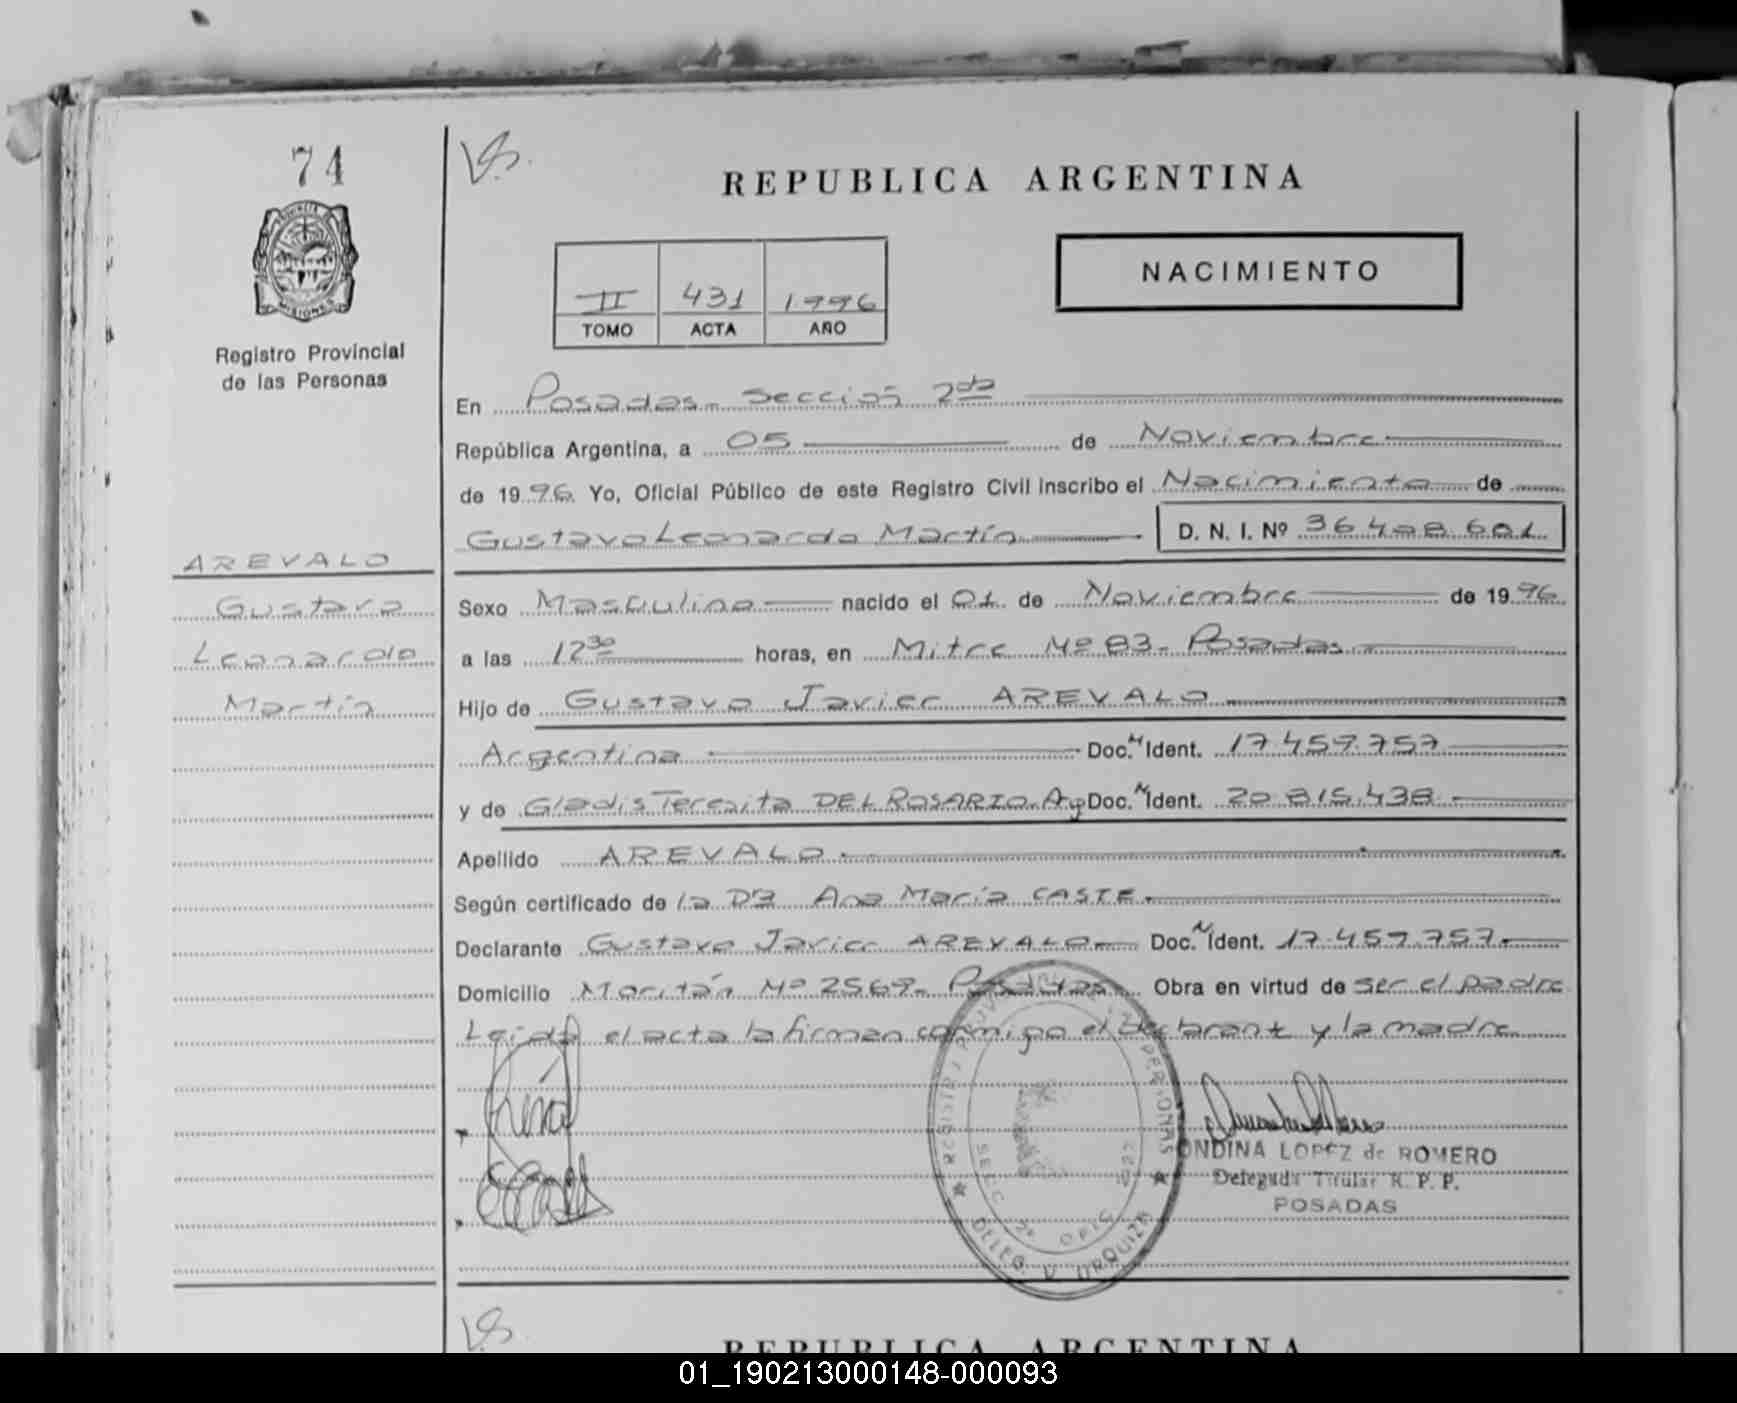 74
V.S.
REPUBLICA ARGENTINA
PROVINCIA DE
MISIONES
Registro Provincial
de las Personas
NACIMIENTO
II 431 1996
TOMO ACTA AÑO
En Posadas - Sección 2da
República Argentina, a 05 de Noviembre
de 1996. Yo, Oficial Público de este Registro Civil inscribo el Nacimiento de
Gustavo Leonardo Martín D. N. I. Nº 36.408.601
AREVALO
Gustavo
Leonardo
Martín
Sexo Masculino nacido el 01 de Noviembre de 1996
a las 12 30 horas, en Mitre Nº 83 - Posadas
Hijo de Gustavo Javier AREVALO
Argentina Doc. N Ident. 17.459.757
y de Gladis Teresita DEL ROSARIO. Ag Doc. N Ident. 20.815.438
Apellido AREVALO
Según certificado de la Dra Ana María CASTE
Declarante Gustavo Javier AREVALO Doc. N Ident. 17.459.757
Domicilio Nº 2569 - Posadas Obra en virtud de ser el padre
Leida el acta la firman conmigo el declarant y la madre
REGISTRO PROV. PERSONAS
SECC. 2ª OFIC.
DELEG. V. URQUIZA
ONDINA LOPEZ de ROMERO
Delegada Titular R. P. P.
POSADAS
V.S.
REPUBLICA ARGENTINA
01_190213000148-000093